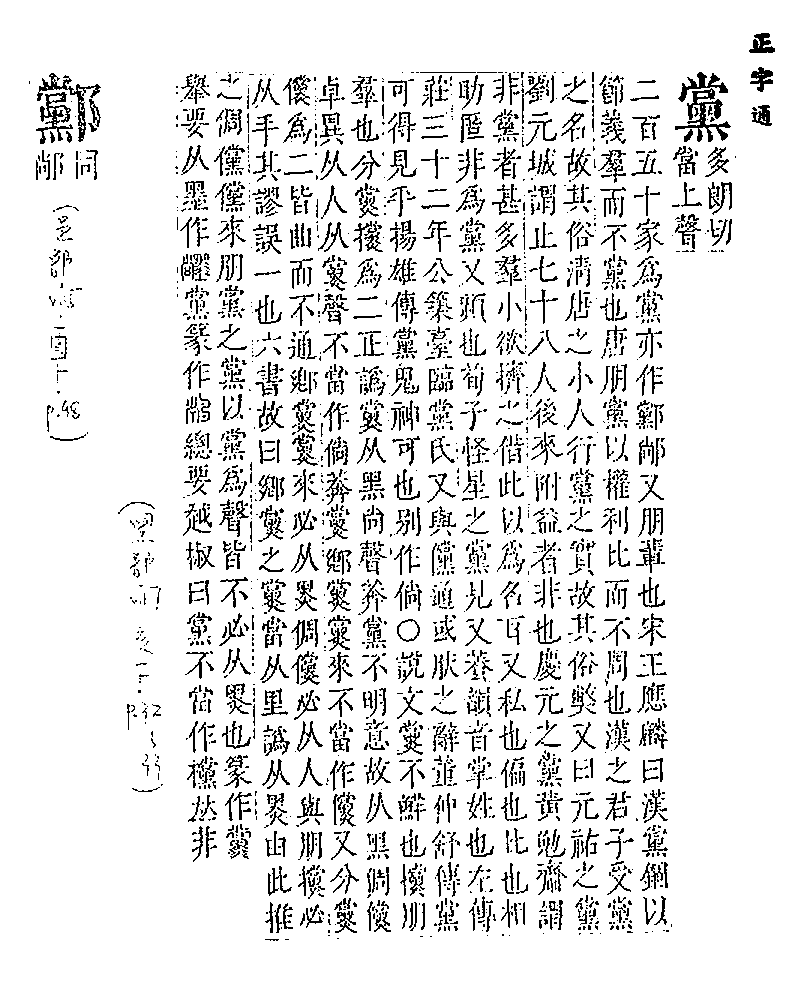 正字通
黨
多朗切
當上聲
二百五十家為黨亦作鄭鄺又朋輩也宋王應麟曰漢黨錮以
節義羣而不黨也唐朋黨以權利比而不周也漢之君子受黨
之名故其俗清唐之小人行黨之實故其俗獘又曰元祐之黨
劉元城謂止七十八人後來附益者非也慶元之黨黃勉齋謂
非黨者甚多羣小欲擠之借此以為名耳又私也偏也比也相
助匿非為黨又頻也荀子怪星之黨見又養韻音掌姓也左傳
莊三十二年公築臺臨黨氏又與儻通或肰之辭董仲舒傳黨
可得見乎揚雄傳黨鬼神可也別作倘○說文黨不鮮也攩朋
羣也分黨攩為二正譌黨从黑尚聲莽黨不明意故从黑倜儻
卓異从人从黨聲不當作倘莽黨鄉黨黨來不當作儻又分黨
儻為二皆曲而不通鄉黨黨來必从黑倜儻必从人與朋攩必
从手其謬誤一也六書故曰鄉黨之黨當从里譌从黑由此推
之倜儻儻來朋黨之黨以黨為聲皆不必从黑也篆作黨
舉要从墨作黨篆作總要越椒曰黨不當作欓㚘非
鄺
同
(邑部 p.48)
(黑部 p.42,43)